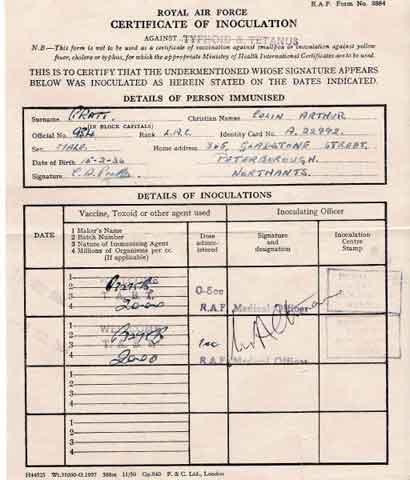 R.A.F. Form No. 3884
ROYAL AIR FORCE
CERTIFICATE OF INOCULATION
AGAINST TYPHOID & TETANUS
N.B—This form is not to be used as a certificate of vaccination against smallpox or inoculation against yellow
fever, cholera or typhus, for which the appropriate Ministry of Health International Certificates are to be used.
THIS IS TO CERTIFY THAT THE UNDERMENTIONED WHOSE SIGNATURE APPEARS
BELOW WAS INOCULATED AS HEREIN STATED ON THE DATES INDICATED.
DETAILS OF PERSON IMMUNISED
Surname PRATT. Christian Names COLIN ARTHUR
(IN BLOCK CAPITALS)
Official No. Rank L.A.C. Identity Card No. A. 22992.
Sex MALE. Home address 365, GLADSTONE STREET,
Date of Birth 15-2-36 PETERBOROUGH.
Signature NORTHANTS.
DETAILS OF INOCULATIONS
DATE
Vaccine, Toxoid or other agent used
1 Maker's Name
2 Batch Number
3 Nature of Immunising Agent
4 Millions of Organisms per cc.
(If applicable)
Dose
admin-
istered
Inoculating Officer
Signature
and
designation
Inoculation
Centre
Stamp
1
2
3 T.A.B.T.
4 2000
0-5cc
R.A.F. Medical Officer
1
2
3
4 2000
1cc
R.A.F. Medical Officer
1
2
3
4
1
2
3
4
F. & C. Ltd., London